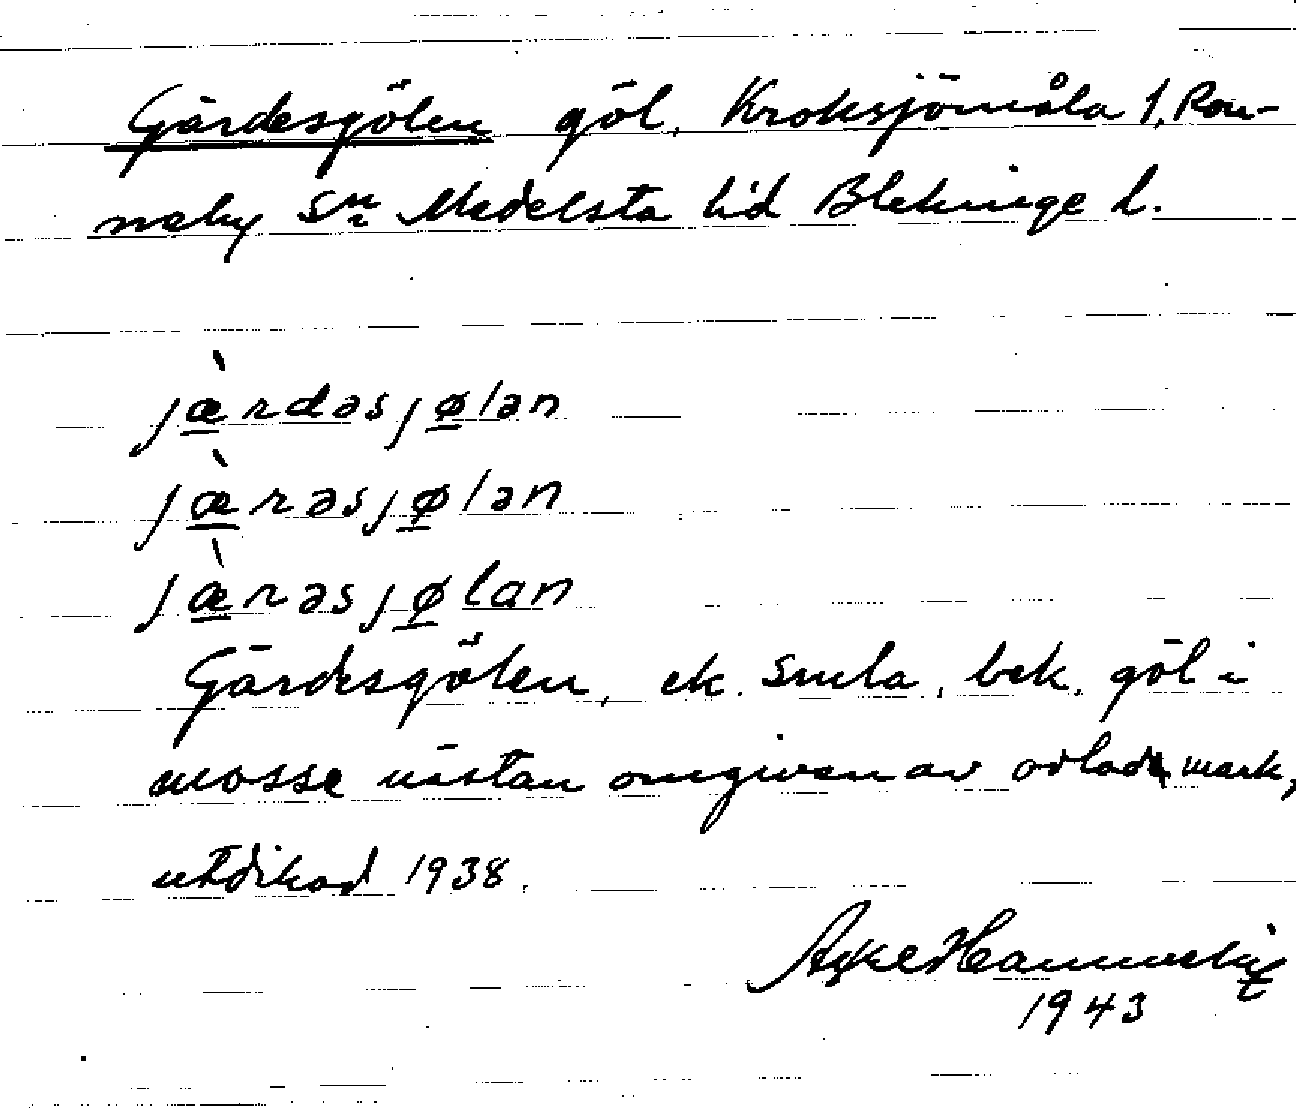 Gärdesgölen göl. Kroksjömåla 1, Ron-
neby sn Medelsta hd Blekinge l.
jæ̀rdəsjølən
jæ̀rəsjølən
jæ̀rəsjølan
Gärdesgölen, ek. Smla, bek. göl i
mosse nästan omgiven av odlade mark,
utdikad 1938.
Åke
1943